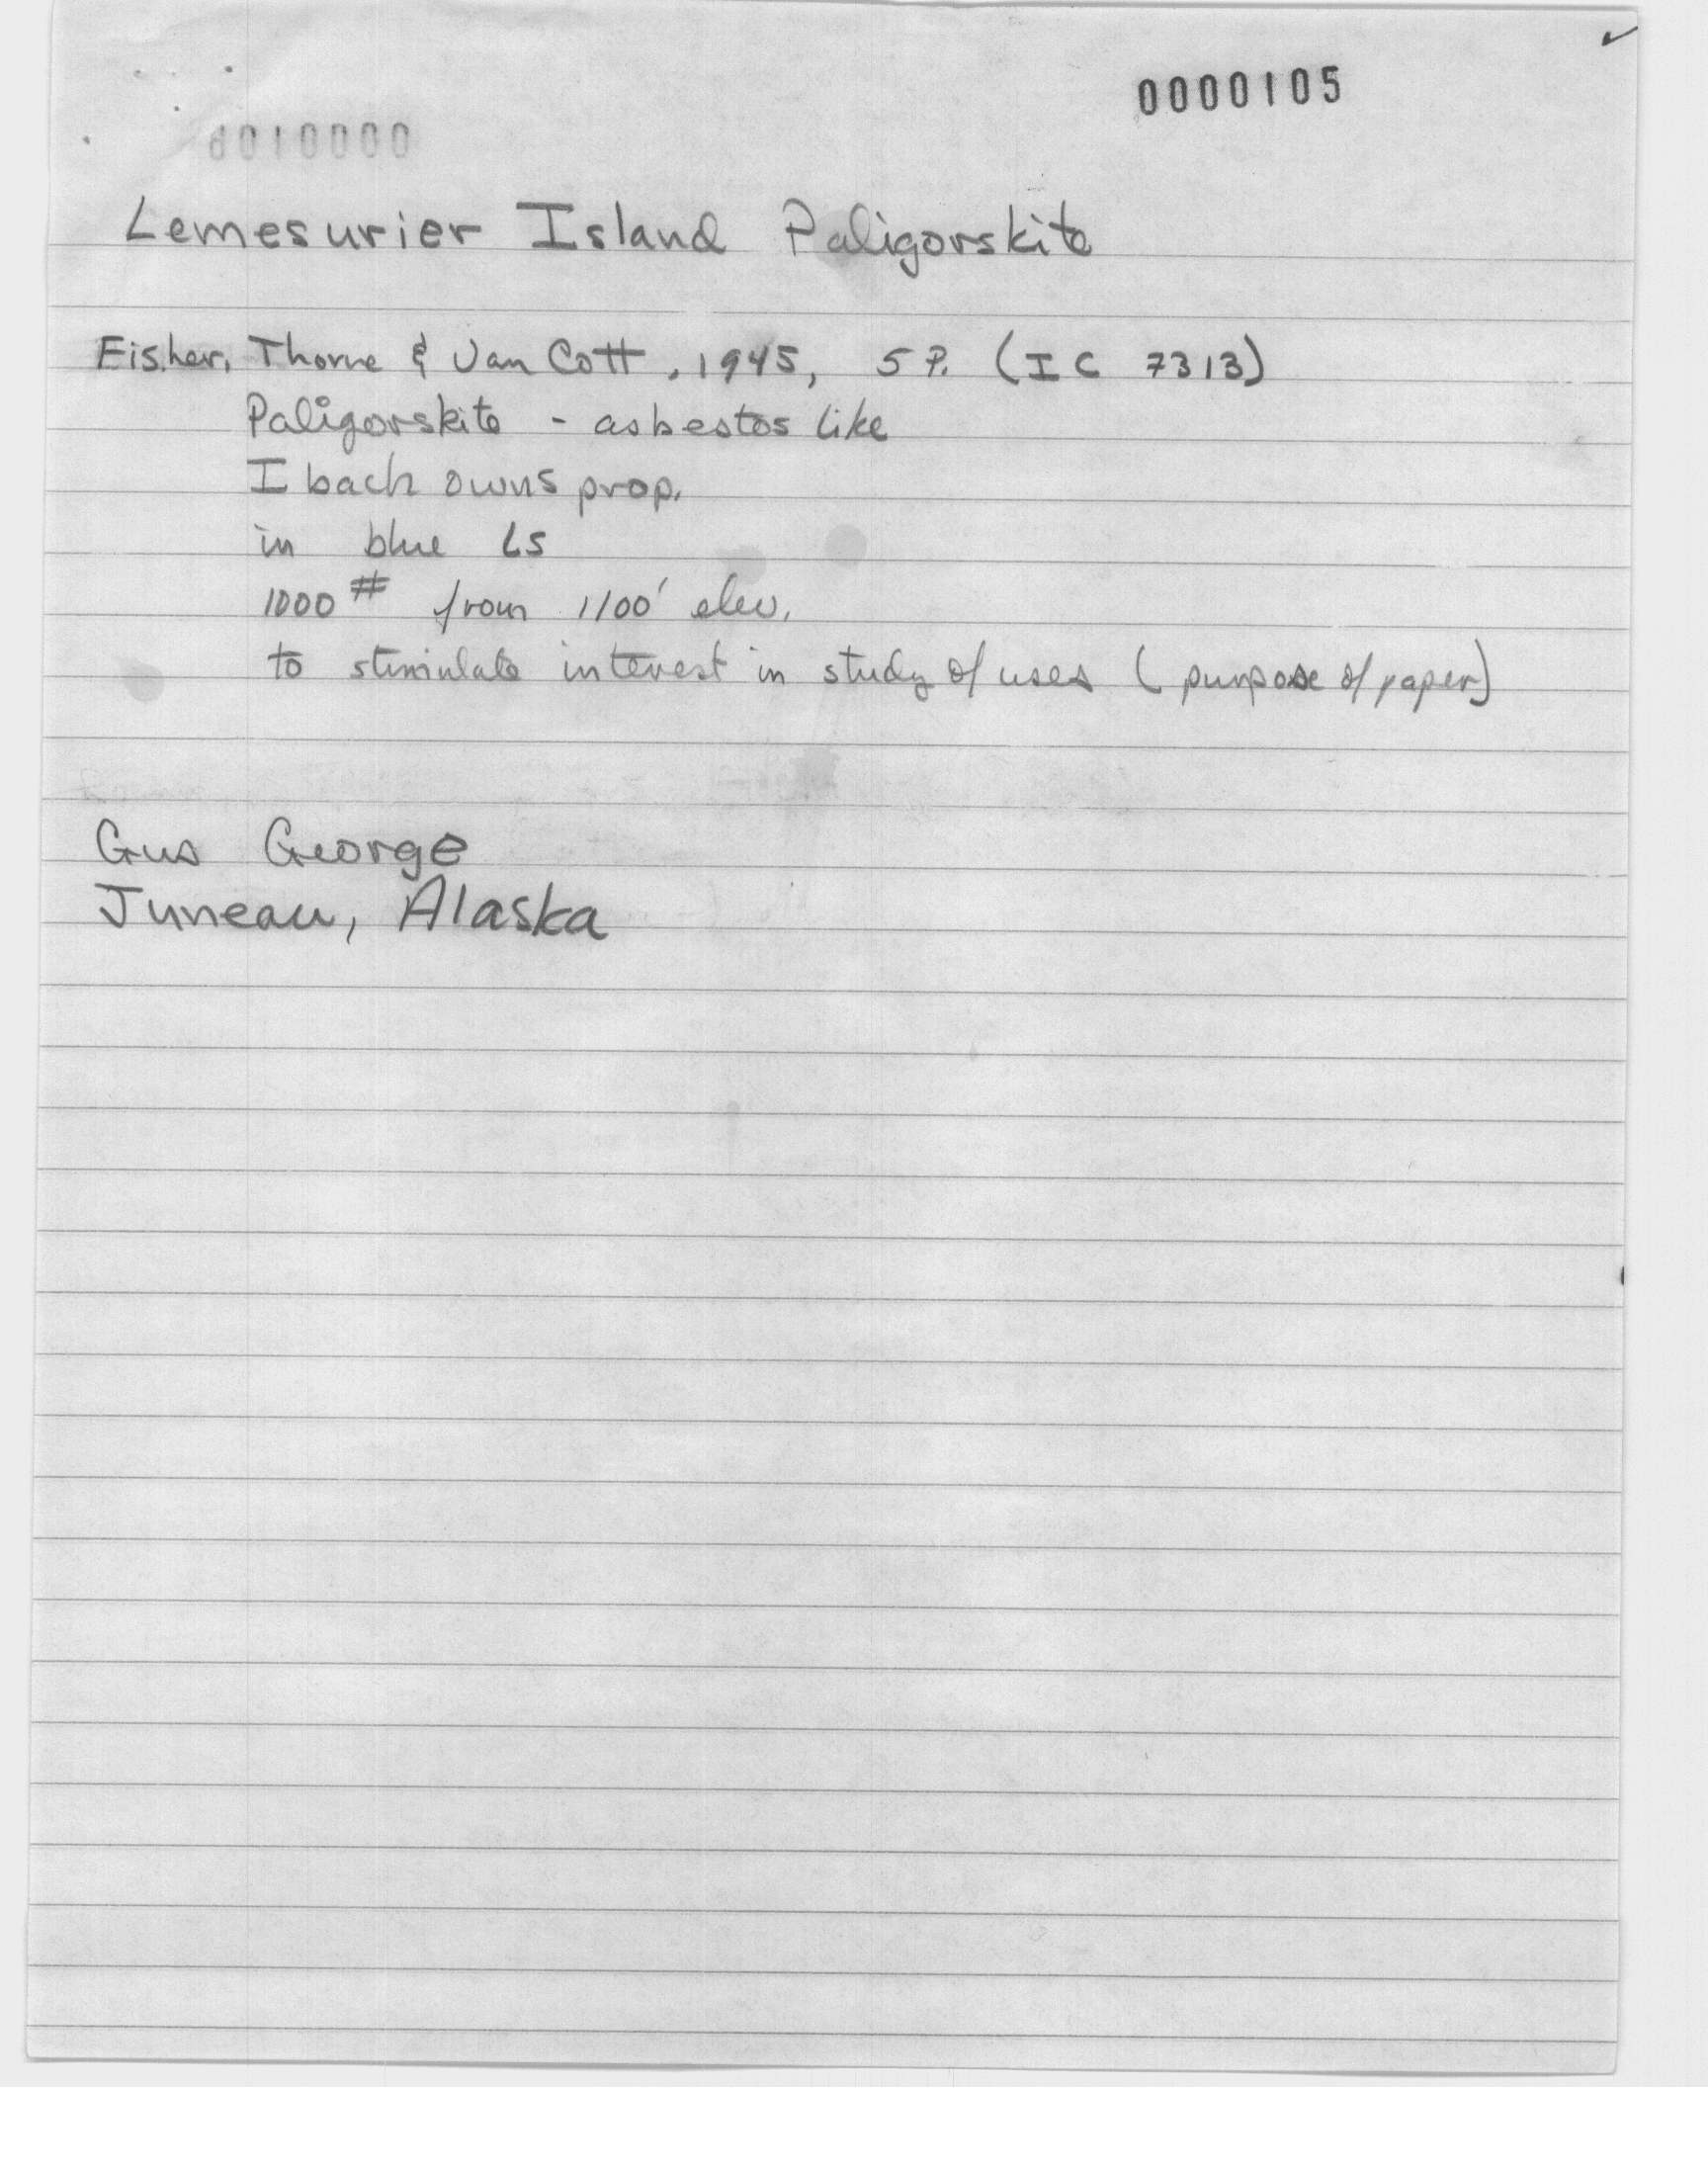 0000105
Lemesurier Island Paligorskite
Eisher, Thorne & Van Cott, 1945, 5 P. (IC 7313)
Paligorskite - asbestos like
Ibach owns prop.
in blue LS
1000 # from 1100' elev.
to stimulate interest in study of uses (purpose of paper)
Gus George
Juneau, Alaska